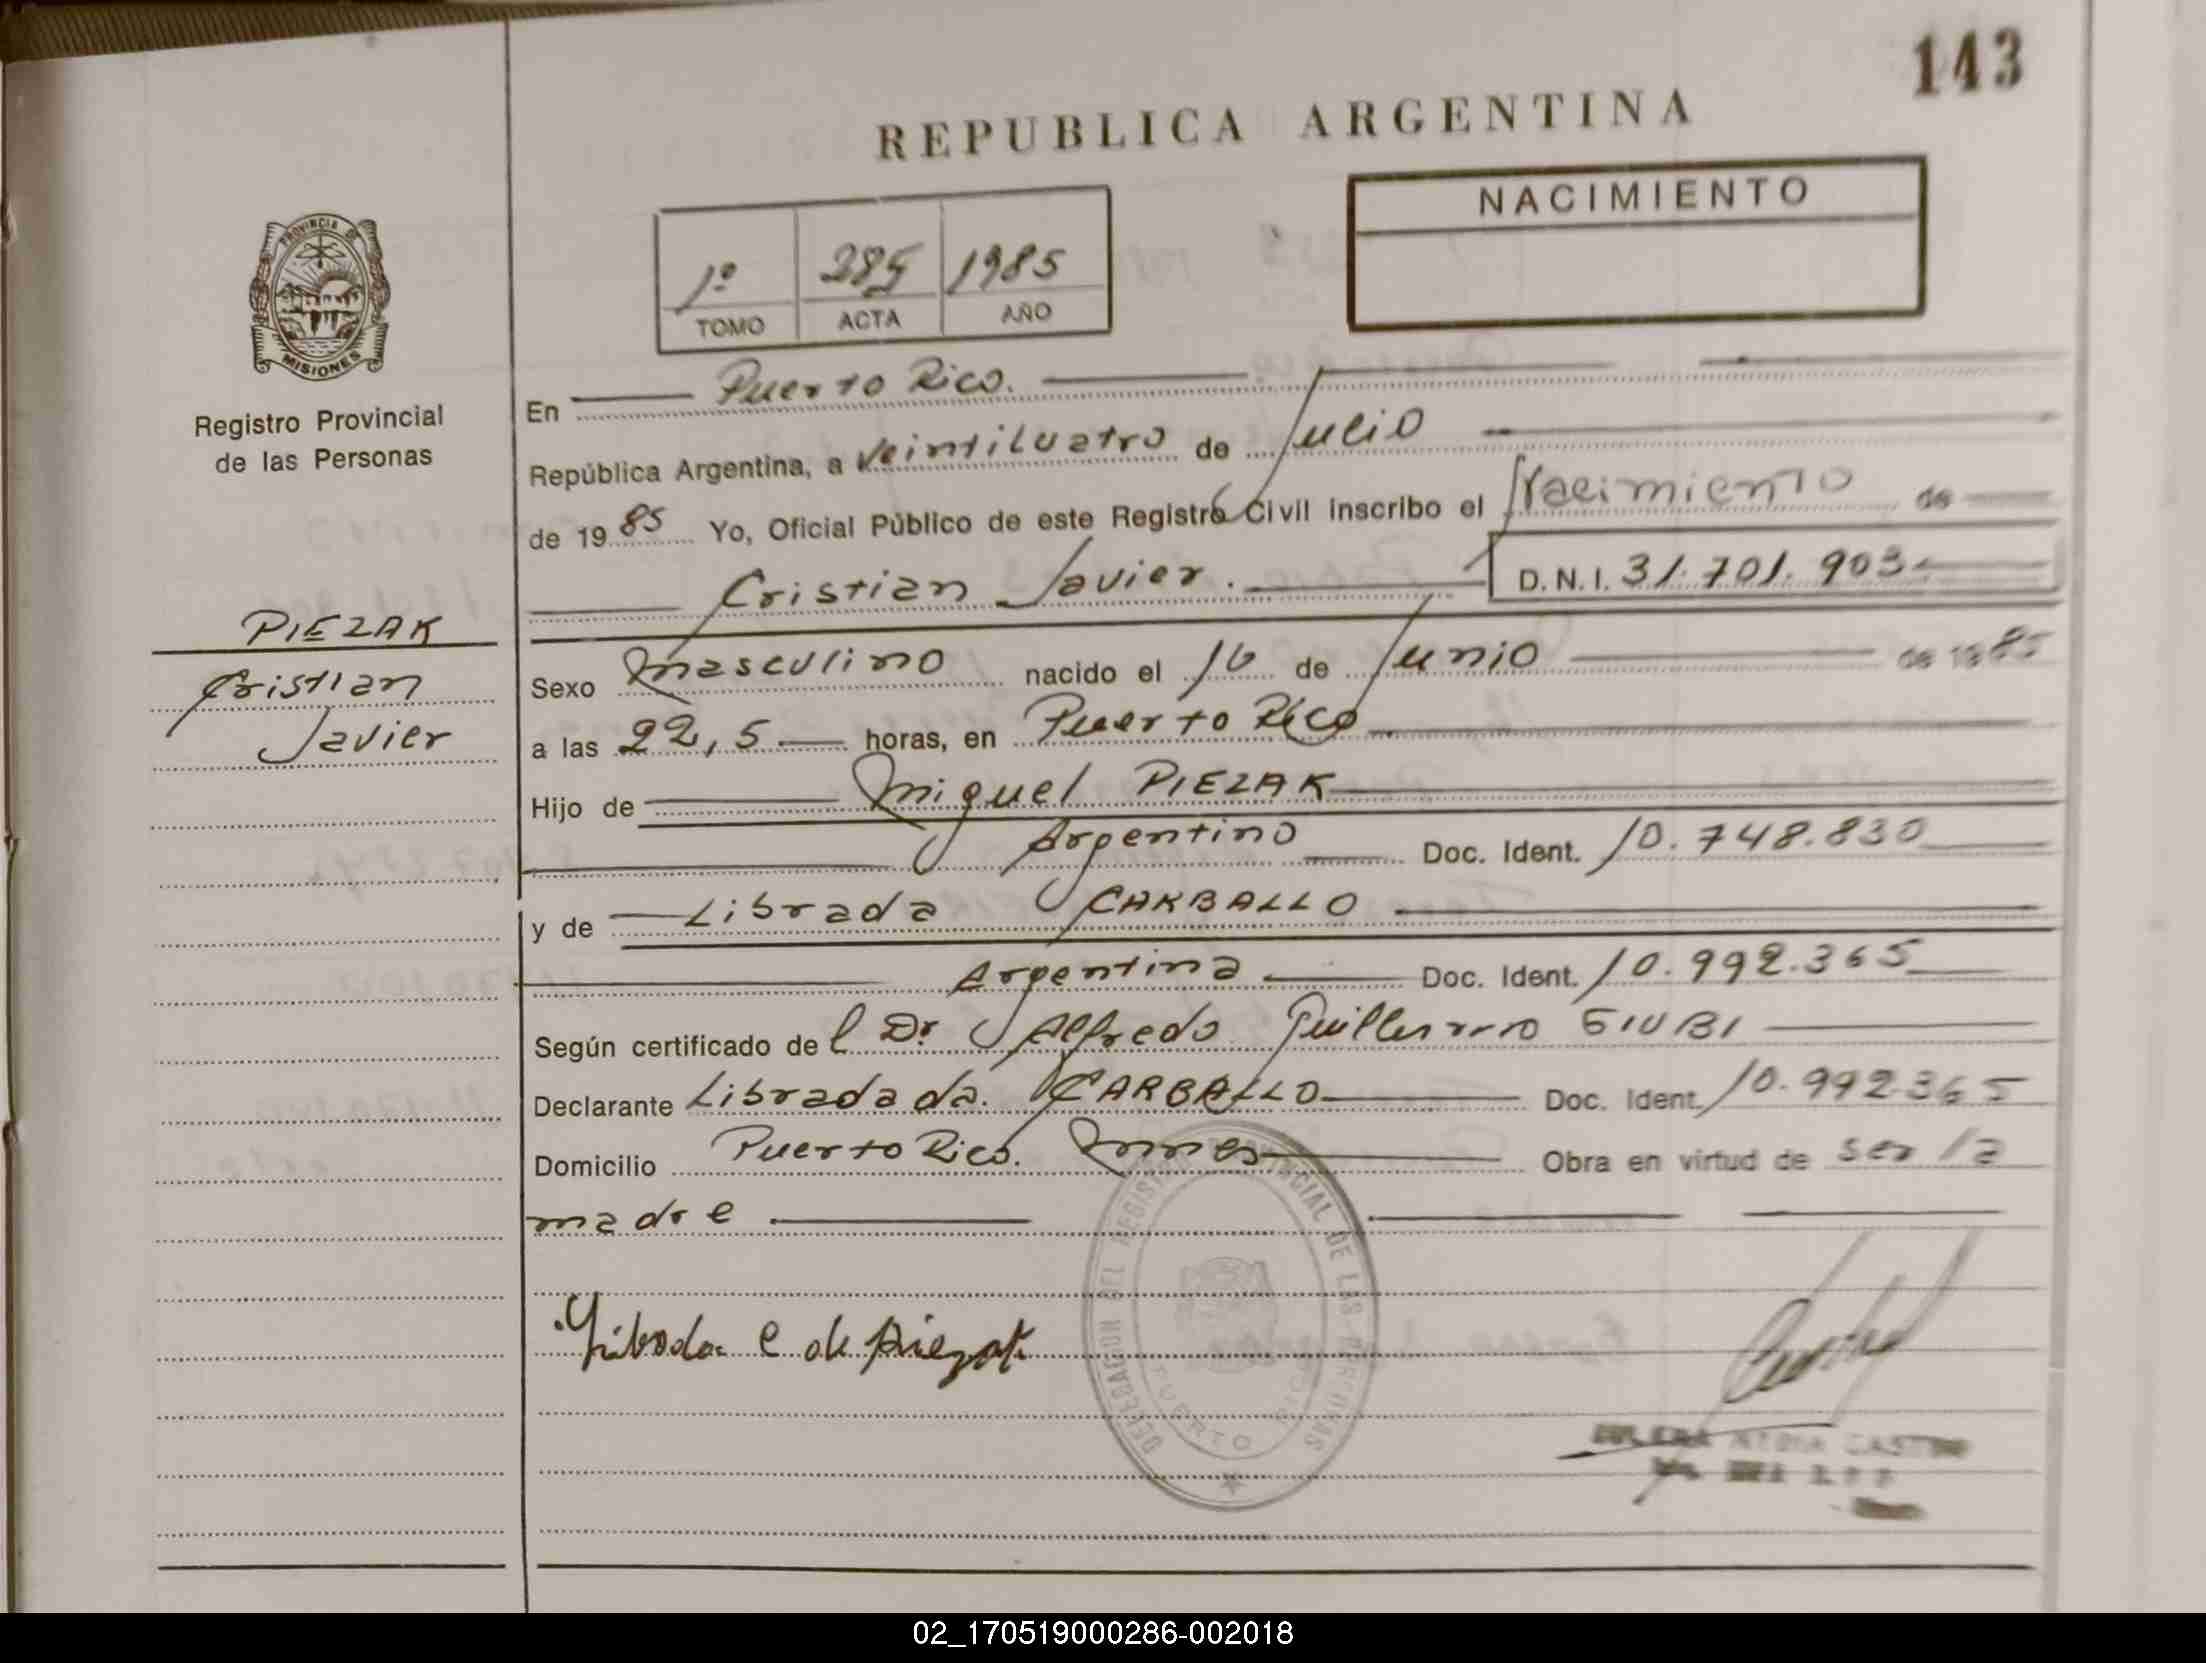 143
REPUBLICA ARGENTINA
NACIMIENTO
1º 285 1985
TOMO ACTA AÑO
PROVINCIA DE
MISIONES
Registro Provincial
de las Personas
PIEZAK
Cristian
Javier
En Puerto Rico.
República Argentina, a Veinticuatro de Julio
de 1985 Yo, Oficial Público de este Registro Civil Inscribo el Nacimiento de
Cristian Javier. D.N.I. 31.701.903
Sexo masculino nacido el 16 de Junio de 1985
a las 22,5 horas, en Puerto Rico
Hijo de Miguel PIEZAK
Argentino Doc. Ident. 10.748.830
y de Librada CARBALLO
Argentina Doc. Ident. 10.992.365
Según certificado del Dr Alfredo Guillermo
Declarante Libradada. CARBALLO Doc. Ident. 10.992.365
Domicilio Puerto Rico. Mnes Obra en virtud de ser la
madre
DELEGACION DEL REGISTRO PROVINCIAL DE LAS PERSONAS
PUERTO RICO
Librada C de Piezak
02_170519000286-002018